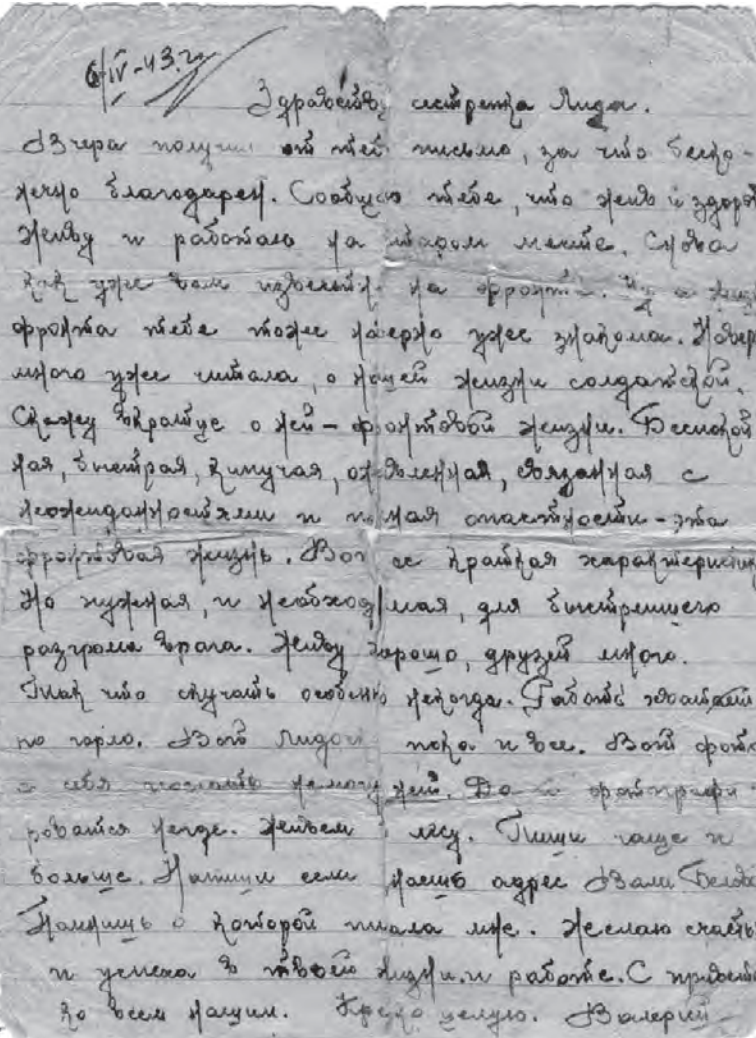 6/IV-43 г.
Здравствуй сестренка Лида.
Вчера получил от тебя письмо, за что беско-
нечно благодарен. Сообщаю тебе, что жив и здоров
Живу и работаю на старом месте. Снова
как уже вам известно на фронте. а
фронта тебе тоже наверно уже знакома. Навер
много уже читала, о нашей жизни солдатской.
Скажу вкратце о ней – фронтовой жизни. Беспокой
ная, быстрая, кипучая, связанная с
неожиданностями и полная опасности – эта
фронтовая жизнь. Вот ее краткая характеристика
Но нужная, и необходимая, для быстрейшего
разгрома врага. Живу хорошо, друзей много.
Так что скучать особенно некогда. Работы хватает
по горло. Вот пока и все. Вот фото
с себя послать немогу нет. Да и фотографи-
роватся негде. Живем в лесу. Пиши чаще и
больше. Напиши если адрес Вали
Помнишь о которой писала мне. Желаю счастья
и успеха в твоей жизни и работе. С приветом
ко всем нашим. Крепко целую. Валерий